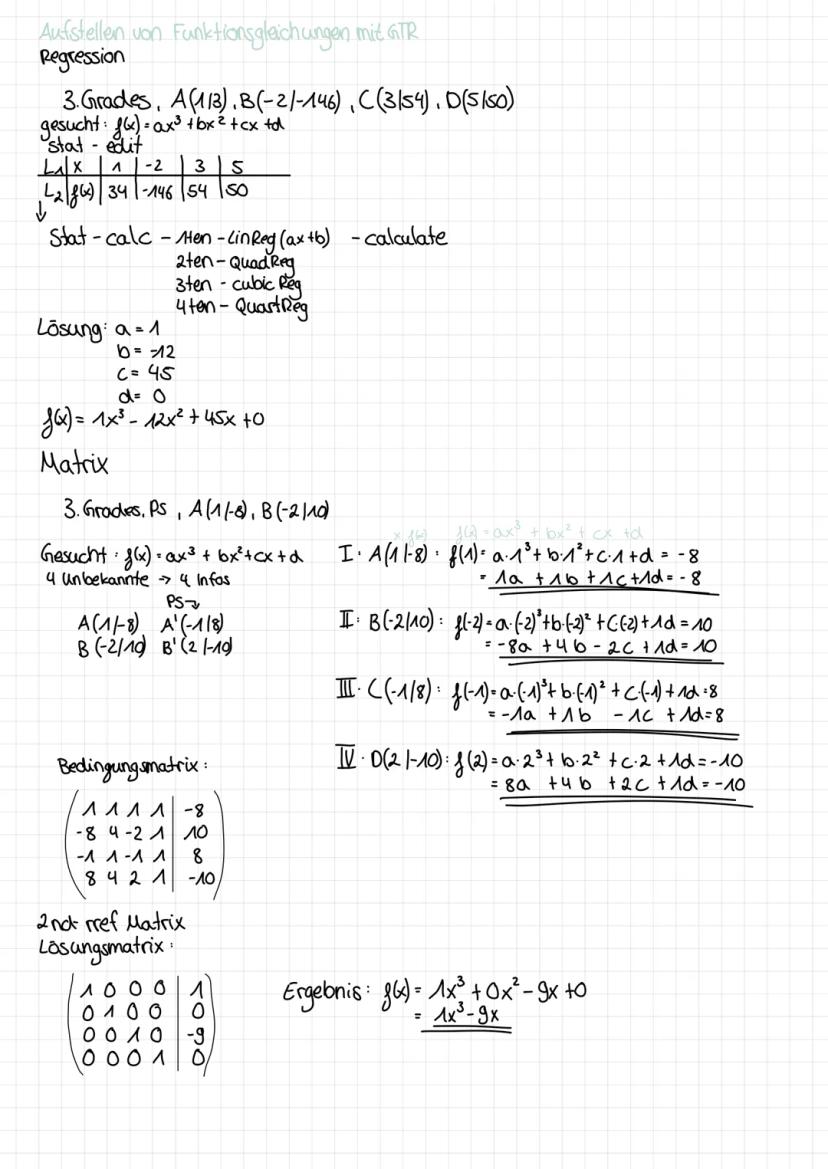 Aufstellen von Funktionsgleichungen mit GTR
Regression
3. Grades, A(1/3), B(-2/-146), C(3/54), D(5/50)
gesucht: f(x) = ax³ + bx² + cx + d
stat - edit
L1 | x | 1 | -2 | 3 | 5
L2 | f(x) | 34 | -146 | 54 | 50
↓
Stat - calc - 1ten - LinReg (ax+b) - calculate
2ten - QuadReg
3ten - cubic Reg
4ten - QuartReg
Lösung: a = 1
b = -12
c = 45
d = 0
f(x) = 1x³ - 12x² + 45x + 0
Matrix
3. Grades, PS, A(1/-8), B(-2/10)
x f(x) f(x) = ax³ + bx² + cx + d
Gesucht: f(x) = ax³ + bx² + cx + d
4 Unbekannte → 4 Infos
PS
A(1/-8) A'(-1/8)
B(-2/10) B'(2/-10)
I. A(1/-8): f(1) = a·1³ + b·1² + c·1 + d = -8
= 1a + 1b + 1c + 1d = -8
II. B(-2/10): f(-2) = a·(-2)³ + b·(-2)² + c(-2) + 1d = 10
= -8a + 4b - 2c + 1d = 10
III. C(-1/8): f(-1) = a·(-1)³ + b·(-1)² + c·(-1) + 1d = 8
= -1a + 1b - 1c + 1d = 8
IV. D(2/-10): f(2) = a·2³ + b·2² + c·2 + 1d = -10
= 8a + 4b + 2c + 1d = -10
Bedingungsmatrix:
1 1 1 1 | -8
-8 4 -2 1 | 10
-1 1 -1 1 | 8
8 4 2 1 | -10
2nd rref Matrix
Lösungsmatrix:
1 0 0 0 | 1
0 1 0 0 | 0
0 0 1 0 | -9
0 0 0 1 | 0
Ergebnis: f(x) = 1x³ + 0x² - 9x + 0
= 1x³ - 9x